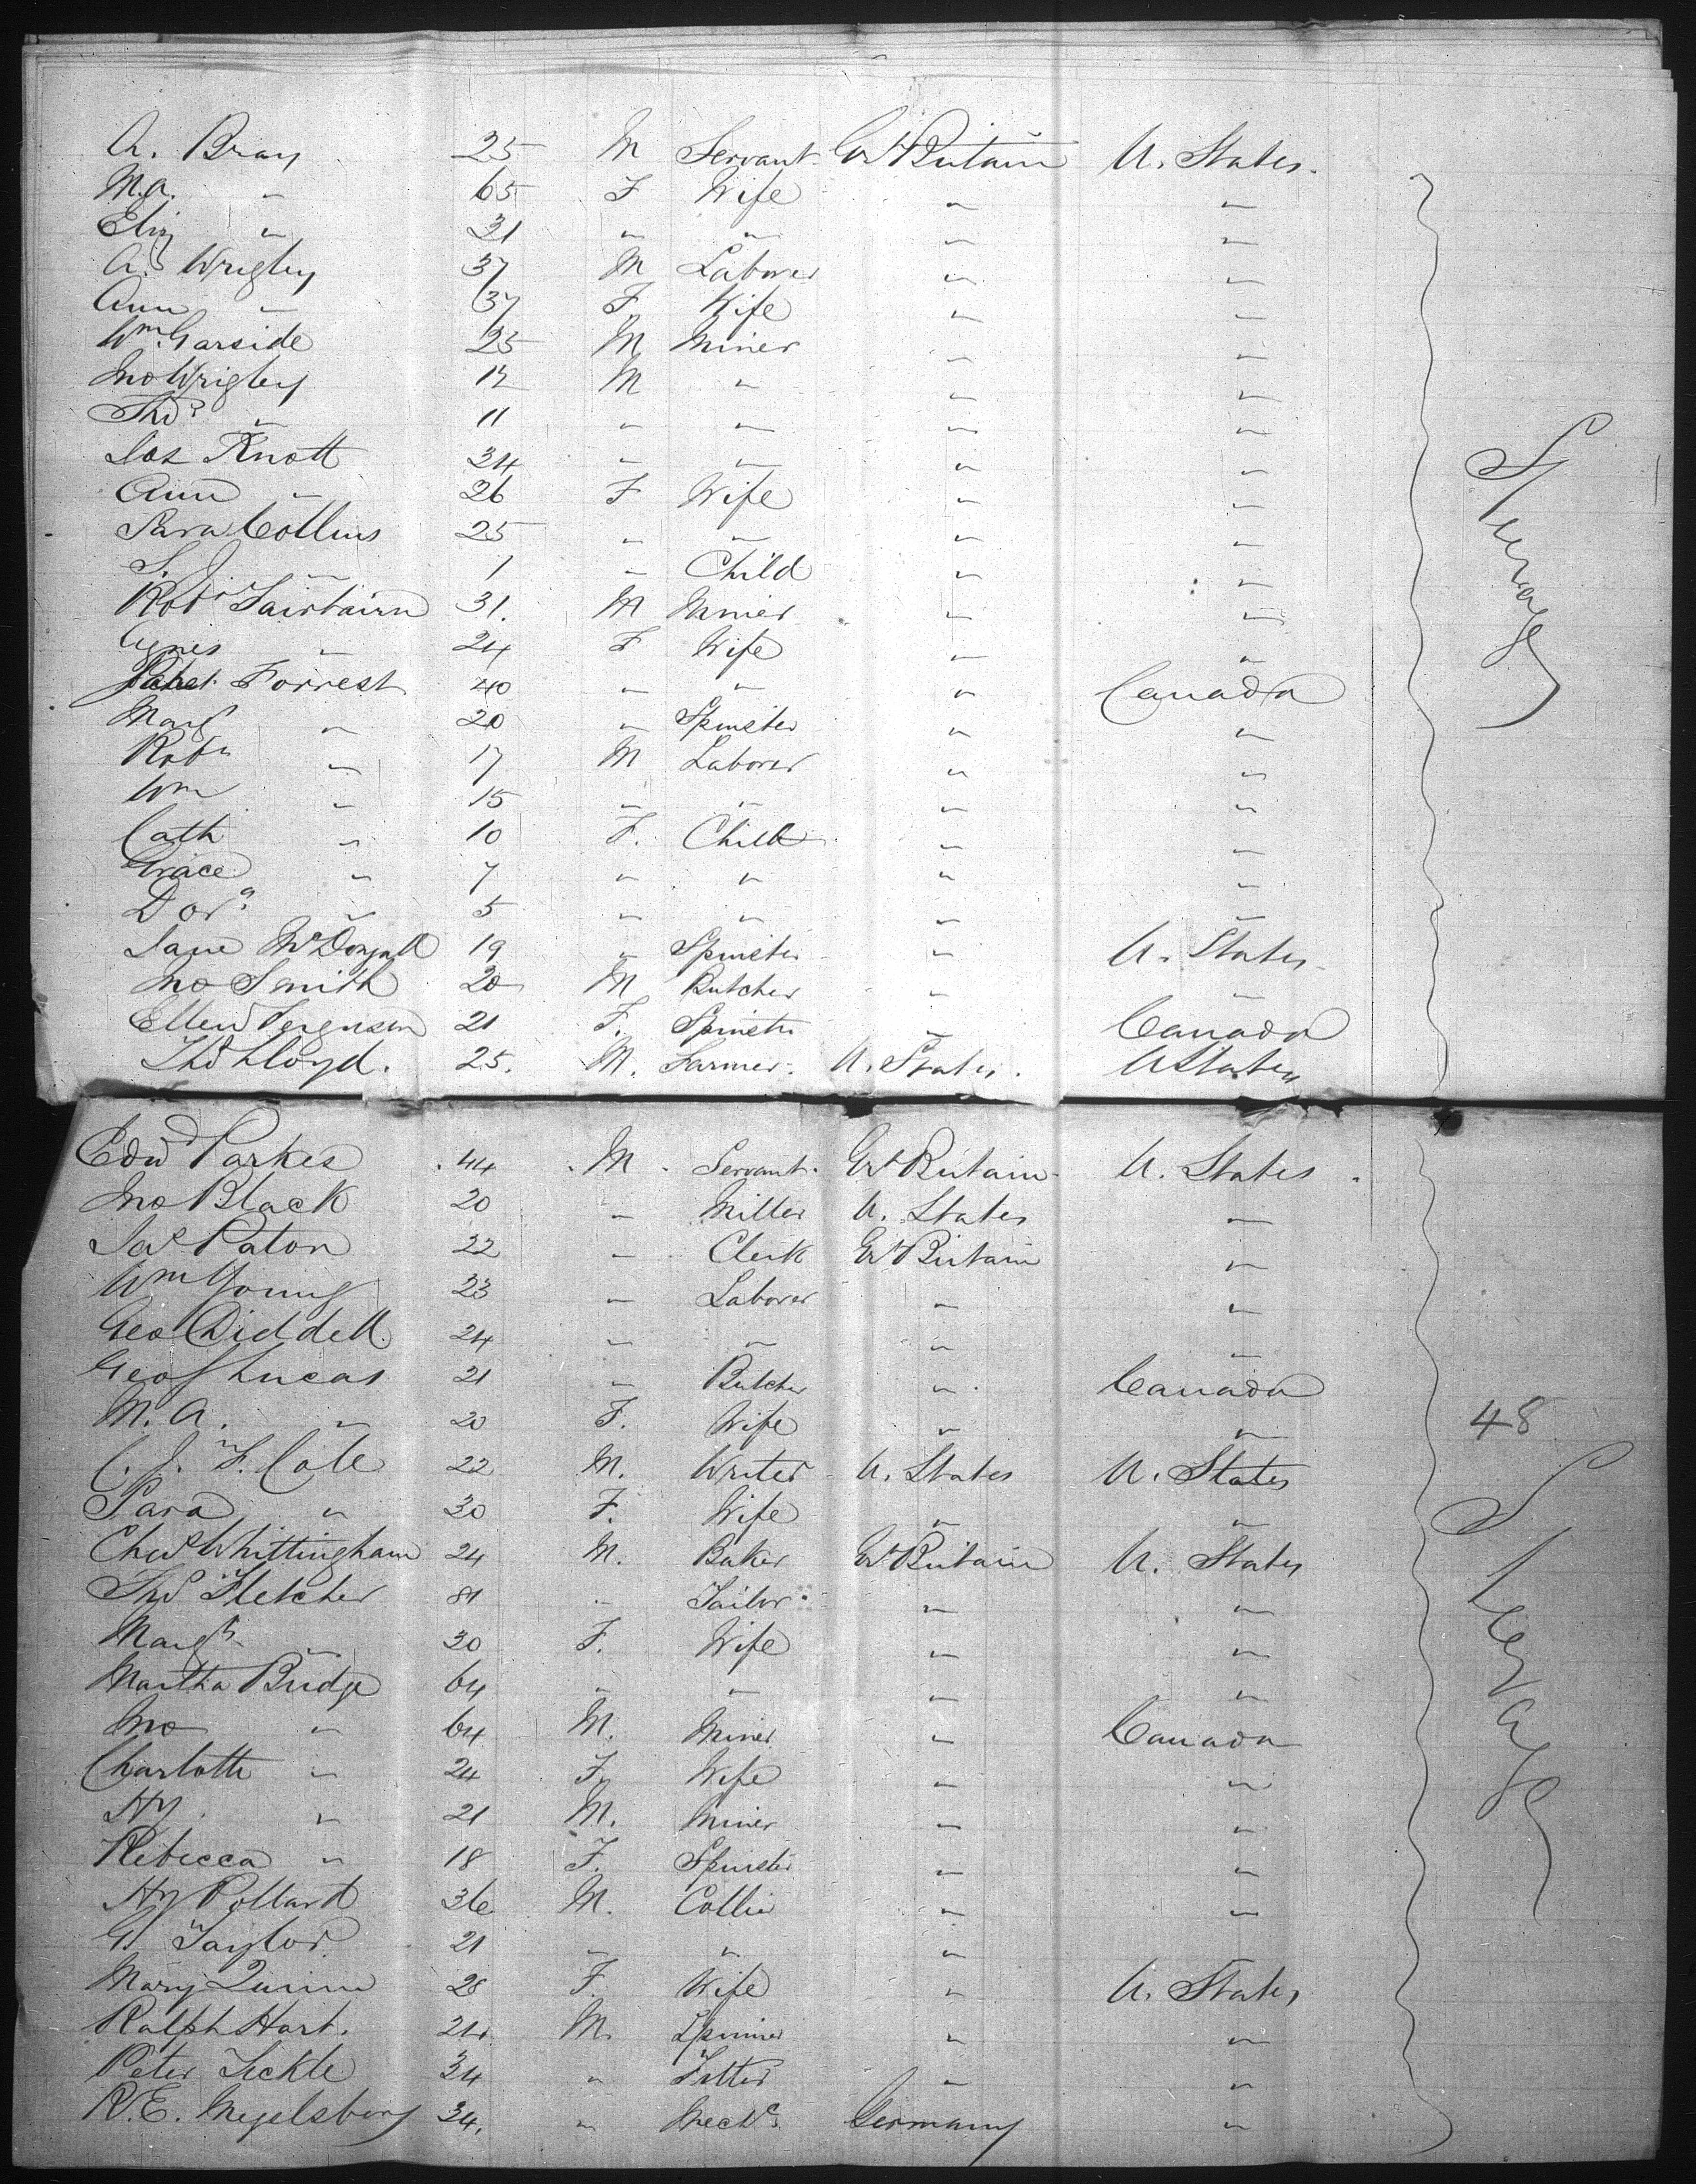 A. Bray 25 M Servant Gt Britain U. States.
M.A. " 65 F Wife " "
Eliz " 21 " " " "
A. Wrigley 37 M Laborer " "
Ann " 37 F. Wife " "
Wm Garside 25 M Miner " "
Jno Wrigley 12 M " " "
Thos " 11 " " " "
Jas Knott 24 " " " "
Ann " 26 F Wife " "
Sara Collins 25 " " " "
S. J. " 1 " Child " "
Robt Fairbairn 31. M Miner " "
Agnes " 24 F Wife " "
Janet Forrest 40 " " " Canada
Marg " 20 " Spinster " "
Robt " 17 M Laborer " "
Wm " 15 " " " "
Cath " 10 F. Child " "
Grace " 7 " " " "
Dora " 5 " " " "
Jane McDougall 19 " Spinster " U. States
Jno Smith 20 M Butcher " "
Ellen Ferguson 21 F. Spinster " Canada
Thos Lloyd. 25. M. Farmer. U. States. U States
Steerage
Edwd Parkes 44 M. Servant. Gt Britain U. States.
Jno Black 20 " Miller U. States "
Jas Paton 22 " Clerk Gt Britain "
Wm Young 23 " Laborer " "
Geo Diddell. 24 " " " "
Geo Lucas 21 " Butcher " Canada
M. A. " 20 F. Wife " "
C. J. F. Cole 22 M. Writer U. States U. States
Sara " 30 F. Wife " "
Chas Whittingham 24 M. Baker Gt Britain U. States
Thos Fletcher 81 " Tailor " "
Margt " 30 F. Wife " "
Martha Bridge 64 " " " "
Jno " 64 M. Miner " Canada
Charlotte " 24 F. Wife " "
Hy. " 21 M. Miner " "
Rebecca " 18 F. Spinster " "
Hy Pollard 36 M. Collier " "
G. Taylor 21 " " " "
Mary Quinn 28 F. Wife " U. States
Ralph Hart. 21 M. Spinner " "
Peter Tickle 34 " Fitter " "
R.E. 34. " Mechc. Germany "
48
Steerage